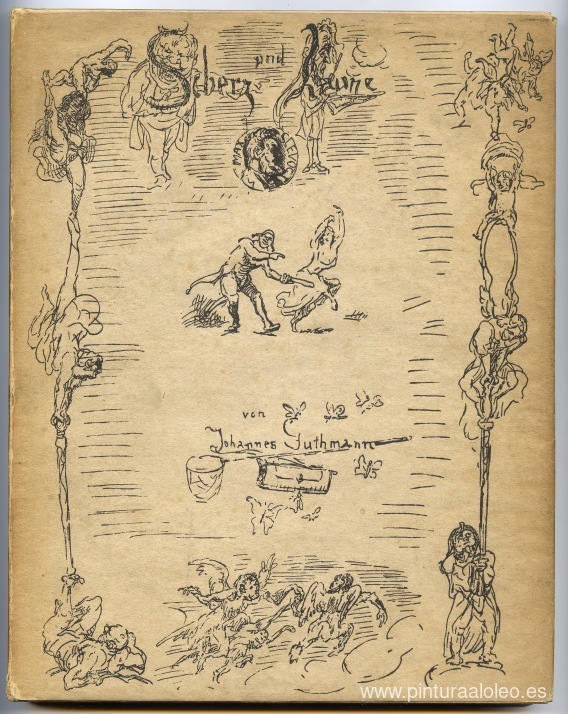 Scherz und Laune
von
Johannes Guthmann
www.pinturaaloleo.es